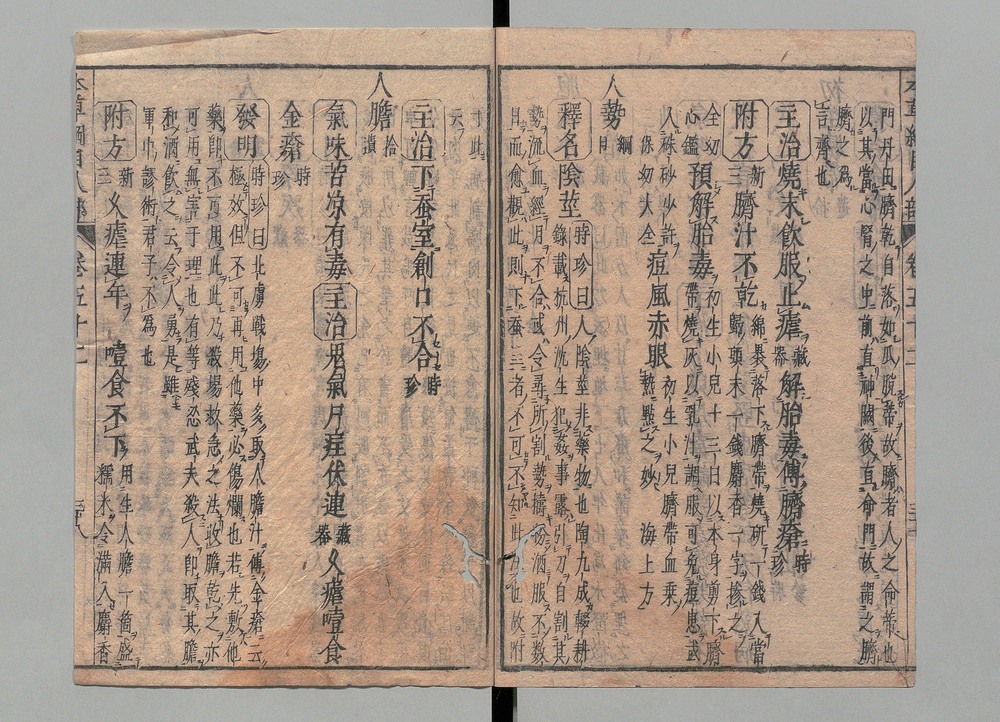 門丹田臍乾自落如瓜脫蒂故臍者人之命蒂也
以其當心腎之中前直神闕後直命門故謂之臍
臍之為
言齊也
主治燒末飲服止瘧藏器解胎毒傅臍瘡時珍
附方新三臍汁不乾綿裹落下臍帶燒研一錢入當
歸頭末一錢麝香一字摻之
全幼
心鑑預解胎毒初生小兒十三日以本身剪下臍
帶燒灰以乳汁調服可免痘患或
入硃砂少許
保幼大全痘風赤眼初生小兒臍帶血乘
熱點之妙 海上方
人勢綱目
釋名陰莖時珍曰人陰莖非藥物也陶九成輟耕
錄載杭州沈生犯姦事露引刀自割其
勢流血經月不合或令尋所割勢擣粉酒服不数
月而愈觀此則下蠶室者不可不知此方也故附
于此
云
主治下蚕室創口不合時珍
人膽拾遺
氣味苦凉有毒主治鬼氣尸疰伏連藏器久瘧噎食
金瘡時珍
發明時珍曰北虜戰場中多取人膽汁傅金瘡云
極效但不可再用他藥必傷爛也若先敷他
藥即不可用此此乃殺場救急之法收膽乾之亦
可用無害于理也有等殘忍武夫殺人即取其膽
和酒飲之云令人勇是雖
軍中謬術君子不為也
附方新三久瘧連年 噎食不下用生人膽一箇盛
糯米令滿入麝香
本草綱目人部 卷五十二